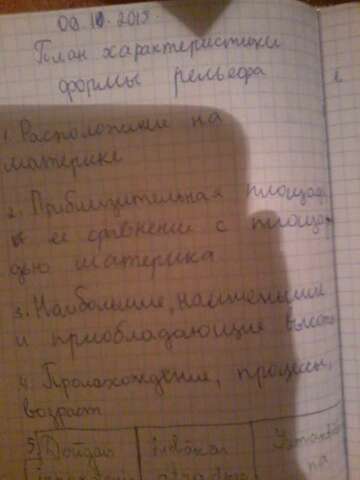 09.10.2015.
План характеристики
формы рельефа
1. Расположение на
материке
2. Приблизительная площадь
и ее сравнение с площа-
дью материка
3. Наибольшие, наименьшие
и приобладающие высоты
4. Происхождение, процессы,
возраст
5.
на